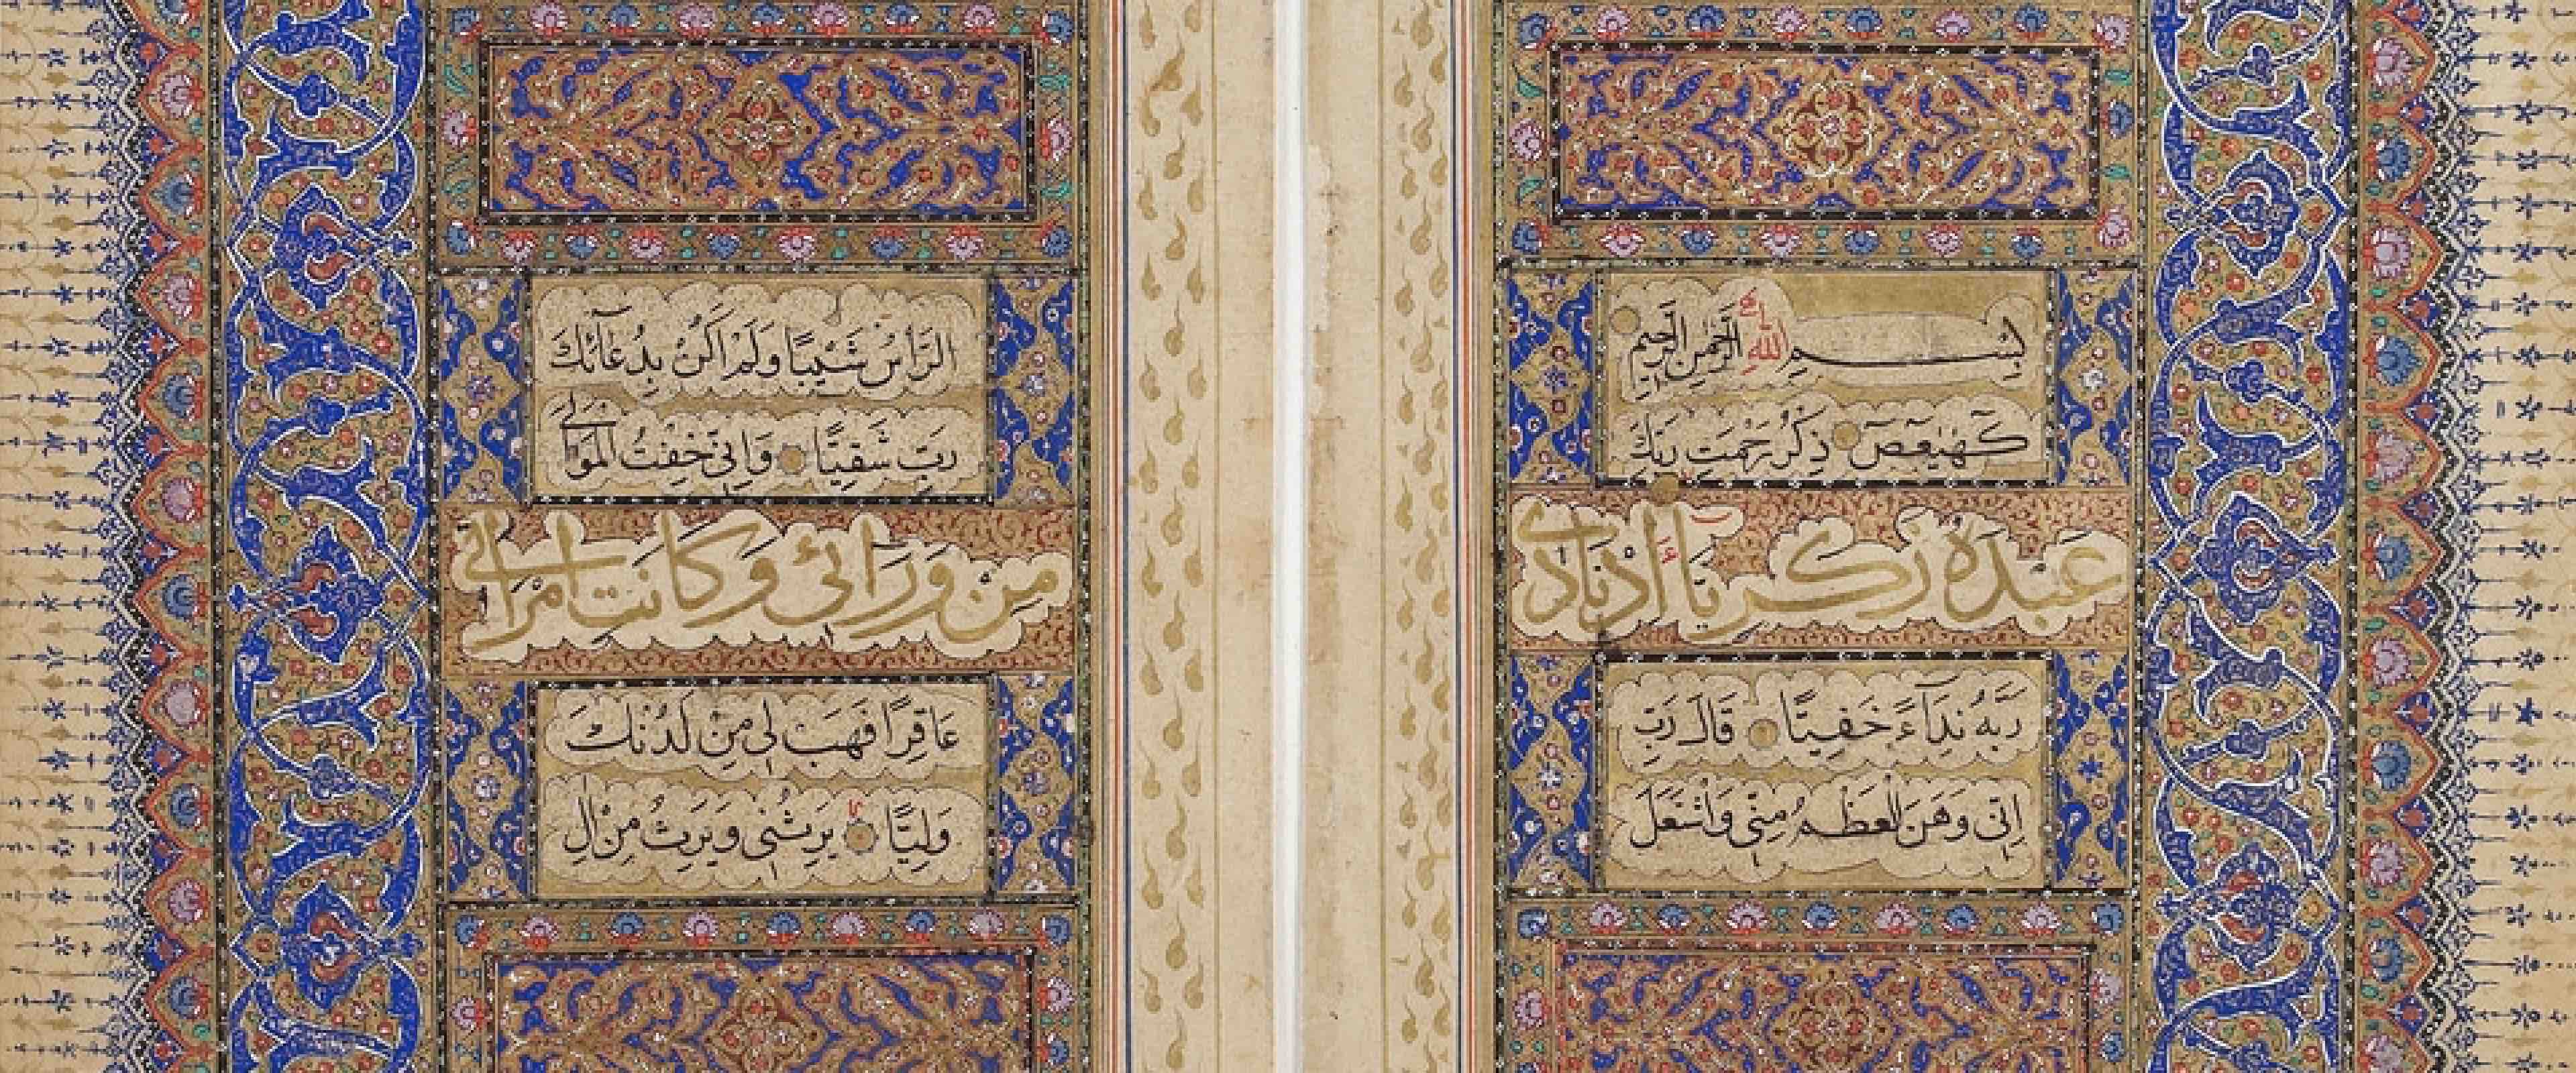 بِسْمِ اللّٰهِ الرَّحْمٰنِ الرَّحِيمِ
كٓهٰيٰعٓصٓ ذِكْرُ رَحْمَتِ رَبِّكَ
عَبْدَهُ زَكَرِيَّا إِذْ نَادَى
رَبَّهُ نِدَآءً خَفِيًّا قَالَ رَبِّ
اِنِّى وَهَنَ الْعَظْمُ مِنِّى وَاشْتَعَلَ
الرَّأْسُ شَيْبًا وَلَمْ اَكُنْ بِدُعَآئِكَ
رَبِّ شَقِيًّا وَاِنِّى خِفْتُ الْمَوَالِىَ
مِنْ وَرَآئِى وَكَانَتِ امْرَاَتِى
عَاقِرًا فَهَبْ لِى مِنْ لَدُنْكَ
وَلِيًّا يَرِثُنِى وَيَرِثُ مِنْ اٰلِ